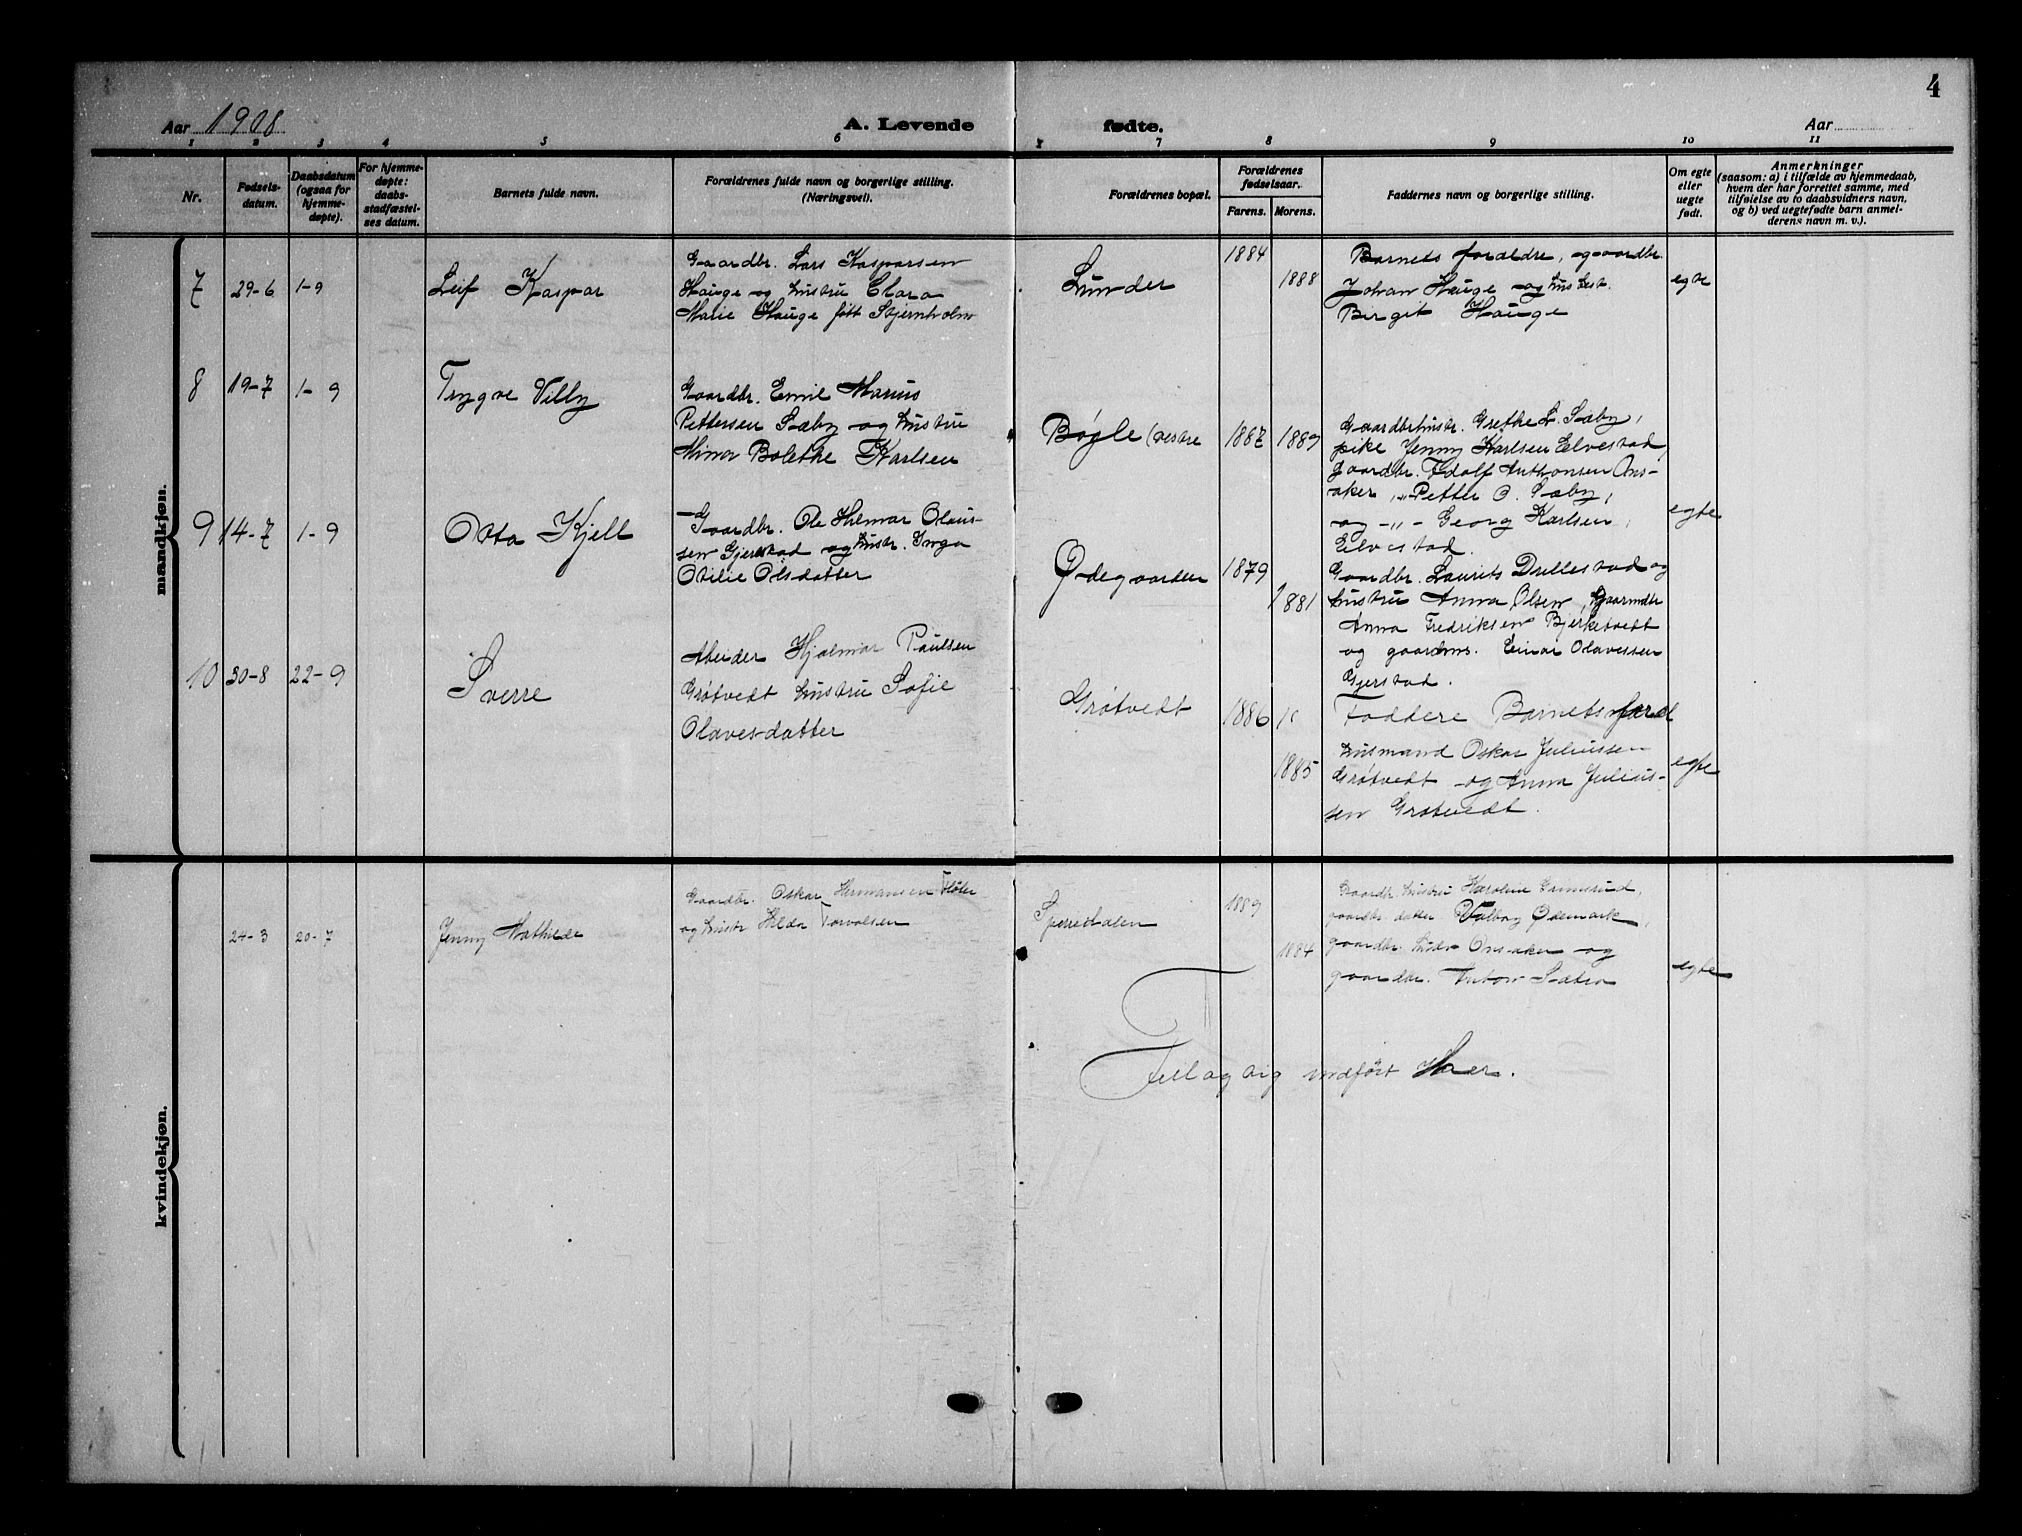 4
Aar 1908
A. Levende
fødte.
Aar
1 2 3 4 5 6 7 8 9 10 11
Nr.
Fødsels-
datum.
Daabsdatum
(ogsaa for
hjemme-
døpte).
For hjemme-
døpte:
daabs-
stadfæstel-
ses datum.
Barnets fulde navn.
Forældrenes fulde navn og borgerlige stilling.
(Næringsvei).
Forældrenes bopæl.
Forældrenes
fødselsaar.
Farens. Morens.
Faddernes navn og borgerlige stilling.
Om egte
eller
uegte
født.
Anmerkninger
(saasom: a) i tilfælde av hjemmedaab,
hvem der har forrettet samme, med
tilføielse av to daabsvidners navn,
og b) ved uegtefødte barn anmel-
derens navn m. v.).
mandkjøn.
7 29-6 1-9 Leif Kaspar
Gaardbr. Lars Kasparsen
Hauge og hustru Clara
Marie Hauge født Stjernholm
Lunder 1884 1888
Barnets foraldre, gaardbr.
Johan Hauge og hustr.
Bergit Hauge
egte
8 19-7 1-9 Trygve Villy
Gaardbr. Emil Marius
Pettersen Sæby og hustru
Mina Bolethe Karlsen
Bøgle (vestre 1887 1889
Gaardbrhustr. Grethe L. Sæby,
pike Jenny Karlsen Elvestad,
gaardbr. Adolf Anthonsen Ons-
aker, -„- Petter O. Sæby,
og -„- Georg Karlsen,
Elvestad.
egte
9 14-7 1-9 Otto Kjell
Gaardbr. Ole Hilmar Olaus-
sen Gjerstad og hustr. Inga
Otilie Olsdatter
Ødegaarden 1879 1881
Gaardbr. Laurits Dullestad og
hustru Anna Olsen,
Anna Fredriksen Bjerketvedt
og gaardms. Einar Olavessen
Gjerstad.
10 30-8 22-9 Sverre
Abeider Hjalmar Paulsen
Grøtvedt hustru Sofie
Olavesdatter
Grøtvedt 1886 1885
Faddere Barnets
husmand Oskar Juliussen
Grøtvedt og Anna Julius-
sen Grøtvedt.
egte
kvindekjøn.
24-3 20-7 Jenny Mathilde
Gaardbr. Oskar Hermansen Fløter
og hustr Hilda Torvalsen
1889 1884
Gaardbr hustru Karoline Grimsrud,
gaardbr. datter Valbog Ødemark,
gaardbr. Onsaker og
gaardbr. Anton Sætra
egte
Feilagtig indført Her.